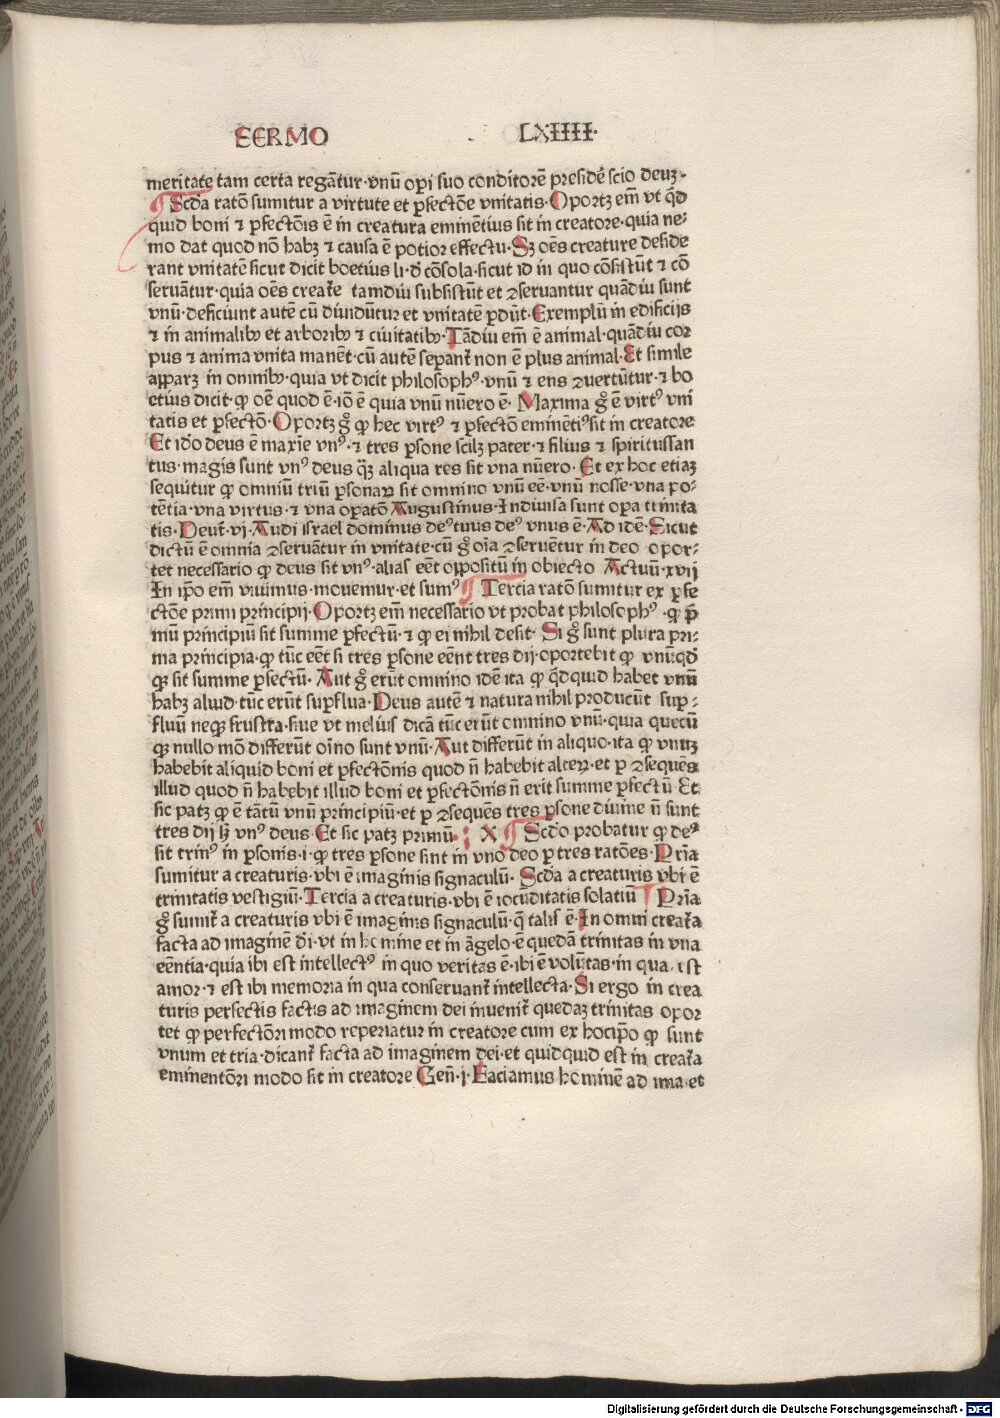 SERMO LXIIII·
meritate tam certa regãtur·vnũ opi suo conditorẽ presidẽ scio deuꝫ·
¶ Scďa ratõ sumitur a virtute et ꝑfectõe vnitatis·Oportꝫ em̃ vt qď
quid boni ⁊ ꝑfectõis ẽ in creatura eminẽtius sit in creatore·quia ne⸗
mo dat quod nõ habꝫ ⁊ causa ẽ potior effectu·Sꝫ oẽs creature deside
rant vnitatẽ sicut dicit boetius li·ď cõsola·sicut id in quo cõsistũt ⁊ cõ
seruãtur·quia oẽs creat̃e tamdiu subsistũt et ꝯseruantur quãdiu sunt
vnũ·deficiunt autẽ cũ diuidũtur et vnitatẽ ꝑdũt·Exemplũ in edificijs
⁊ in animalibꝫ et arboribꝫ ⁊ ciuitatibꝫ·Tãdiu em̃ ẽ animal·quãdiu cor
pus ⁊ anima vnita manẽt·cũ autẽ sepant̃ non ẽ plus animal·Et simile
apparꝫ in omnibꝫ·quia vt dicit philosophꝰ·vnũ ⁊ ens ꝯuertũtur·⁊ bo
etius dicit·ꝙ oẽ quod ẽ·iõ ẽ quia vnũ nũero ẽ· Maxima g̊ ẽ virtꝰ vni
tatis et ꝑfectõ·Oportꝫ g̊ ꝙ hec virtꝰ ⁊ ꝑfectõ eminẽtiꝰ sit in creatore
Et idõo deus ẽ maxĩe vnꝰ·⁊ tres ꝑsone scilꝫ pater·⁊ filius ⁊ spiritussan
tus·magis sunt vnꝰ deus q̃ꝫ aliqua res sit vna nũero·Et ex hoc etiaꝫ
sequitur ꝙ omniũ triũ ꝑsonaꝝ sit omnino vnũ eẽ·vnũ nosse·vna po⸗
tẽtia·vna virtus·⁊ vna oꝑatõ Augustinus·Indiuisa sunt oꝑa trinita
tis·Deut̃·vj·Audi israel dominus deꝰ tuus deꝰ vnus ẽ·Ad idẽ·Sicut
dictũ ẽ omnia ꝯseruãtur in vnitate·cũ g̊ oĩa ꝯseruẽtur in deo opor⸗
tet necessario ꝙ deus sit vnꝰ·alias eẽt oppositũ in obiecto Actuũ·xvij
In ip̃o em̃ viuimus·mouemur·et sumꝰ ¶ Tercia ratõ sumitur ex ꝑfe
ctõe primi principij·Oportꝫ em̃ necessario vt probat philosophꝰ·ꝙ p̃
mũ principiũ sit summe ꝑfectũ·⁊ ꝙ ei nihil desit· Si g̊ sunt plura pri⸗
ma principia·ꝙ tũc eẽt si tres ꝑsone eẽnt tres dij·oportebit ꝙ vnũqď
qꝫ sit summe ꝑfectũ· Aut g̊ erũt omnino idẽ ita ꝙ q̃dquid habet vnũ
habꝫ aliud·tũc erũt suꝑflua·Deus autẽ ⁊ natura nihil producũt sup⸗
fluũ neqꝫ frustra·siue vt melius dicã tũc erũt omnino vnũ·quia quecũ
qꝫ nullo mõ differũt oĩno sunt vnũ·Aut differũt in aliquo·ita ꝙ vnuꝫ
habebit aliquid boni et ꝑfectõnis quod ñ habebit alteꝝ·et ꝑ ꝯsequẽs
illud quod ñ habebit illud boni et ꝑfectõnis ñ erit summe ꝑfectũ Et
sic patꝫ ꝙ ẽ tãtũ vnũ principiũ·et ꝑ ꝯsequẽs tres ꝑsone diuine ñ sunt
tres dij sꝫ vnꝰ deus·Et sic patꝫ primũ·: X ¶ Scďo probatur ꝙ deꝰ
sit trinꝰ in ꝑsonis·i·ꝙ tres ꝑsone sint in vno deo ꝑ tres ratões·Pria
sumitur a creaturis·vbi ẽ imaginis signaculũ· Scďa a creaturis vbi ẽ
trinitatis vestigiũ·Tercia a creaturis·vbi ẽ iocũditatis solatiũ ¶ Pria
g̊ sumit̃ a creaturis vbi ẽ imaginis signaculũ·q̃ talis ẽ·In omni creat̃a
facta ad imaginẽ ďi·vt in homine et in ãgelo·ẽ quedã trinitas in vna
eẽntia·quia ibi est intellectꝰ in quo veritas ẽ·ibi ẽ volũtas·in qua est
amor·⁊ est ibi memoria in qua conseruant̃ intellecta·Si ergo in crea
turis perfectis factis ad imaginem dei inuenit̃ quedaꝫ trinitas opor
tet ꝙ perfectõri modo reperiatur in creatore cum ex hoc ip̃o ꝙ sunt
vnum et tria·dicant̃ facta ad imaginem dei·et quidquid est in creat̃a
eminentõri modo sit in creatore Geñ·j·Faciamus hominẽ ad ima·et
Digitalisierung gefördert durch die Deutsche Forschungsgemeinschaft - DFG